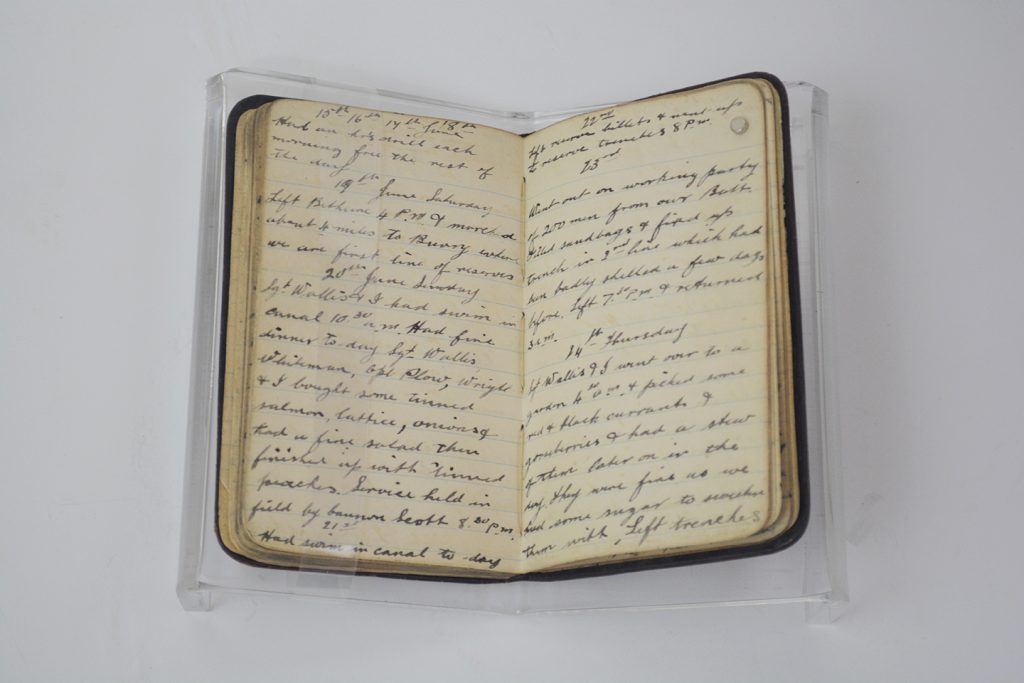 15th 16th 17th 18th June
Had an hrs drill each
morning free the rest of
the day
19th June Saturday
Left Bethune 4 P.M. & marched
about 4 miles to Buvry where
we are first line of reserves
20th June Sunday
Sgt Wallis & I had swim in
canal 10.30 a.m. Had fine
dinner to day Sgt Wallis,
Whiteman, Cpl Plow, Wright
& I bought some tinned
salmon, lattice, onions &
had a fine salad then
finished up with tinned
peaches. Service held in
field by cannon Scott 8.30 p.m.
21st
Had swim in canal to-day
22nd
Left reserve billets & went up
to reserve trenches 8 P.m.
23rd
Went out on working party
of 200 men from our Batt.
filled sandbags & fixed up
trench in 3rd line which had
been badly shelled a few days
before. Left 7.30 Pm & returned
3 a.m.
24th Thursday
Sgt Wallis & I went over to a
garden 4.30 a m & picked some
red & black currants &
gousberries & had a stew
of them later on in the
day. they were fine as we
had some sugar to sweeten
them with. Left trenches